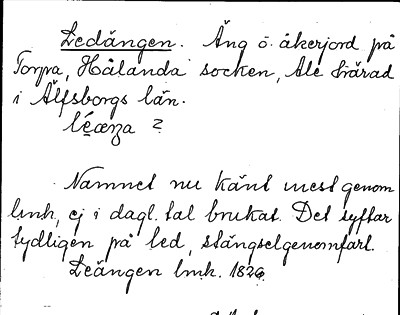 Ledängen. Äng o. åkerjord på
Torpa, Hålanda socken, Ale härad
i Älfsborgs län.
léæŋa ?
Namnet nu känt mest genom
lmh, ej i dagl. tal brukat. Det syftar
tydligen på led, stängselgenomfart.
Leängen lmh. 1826